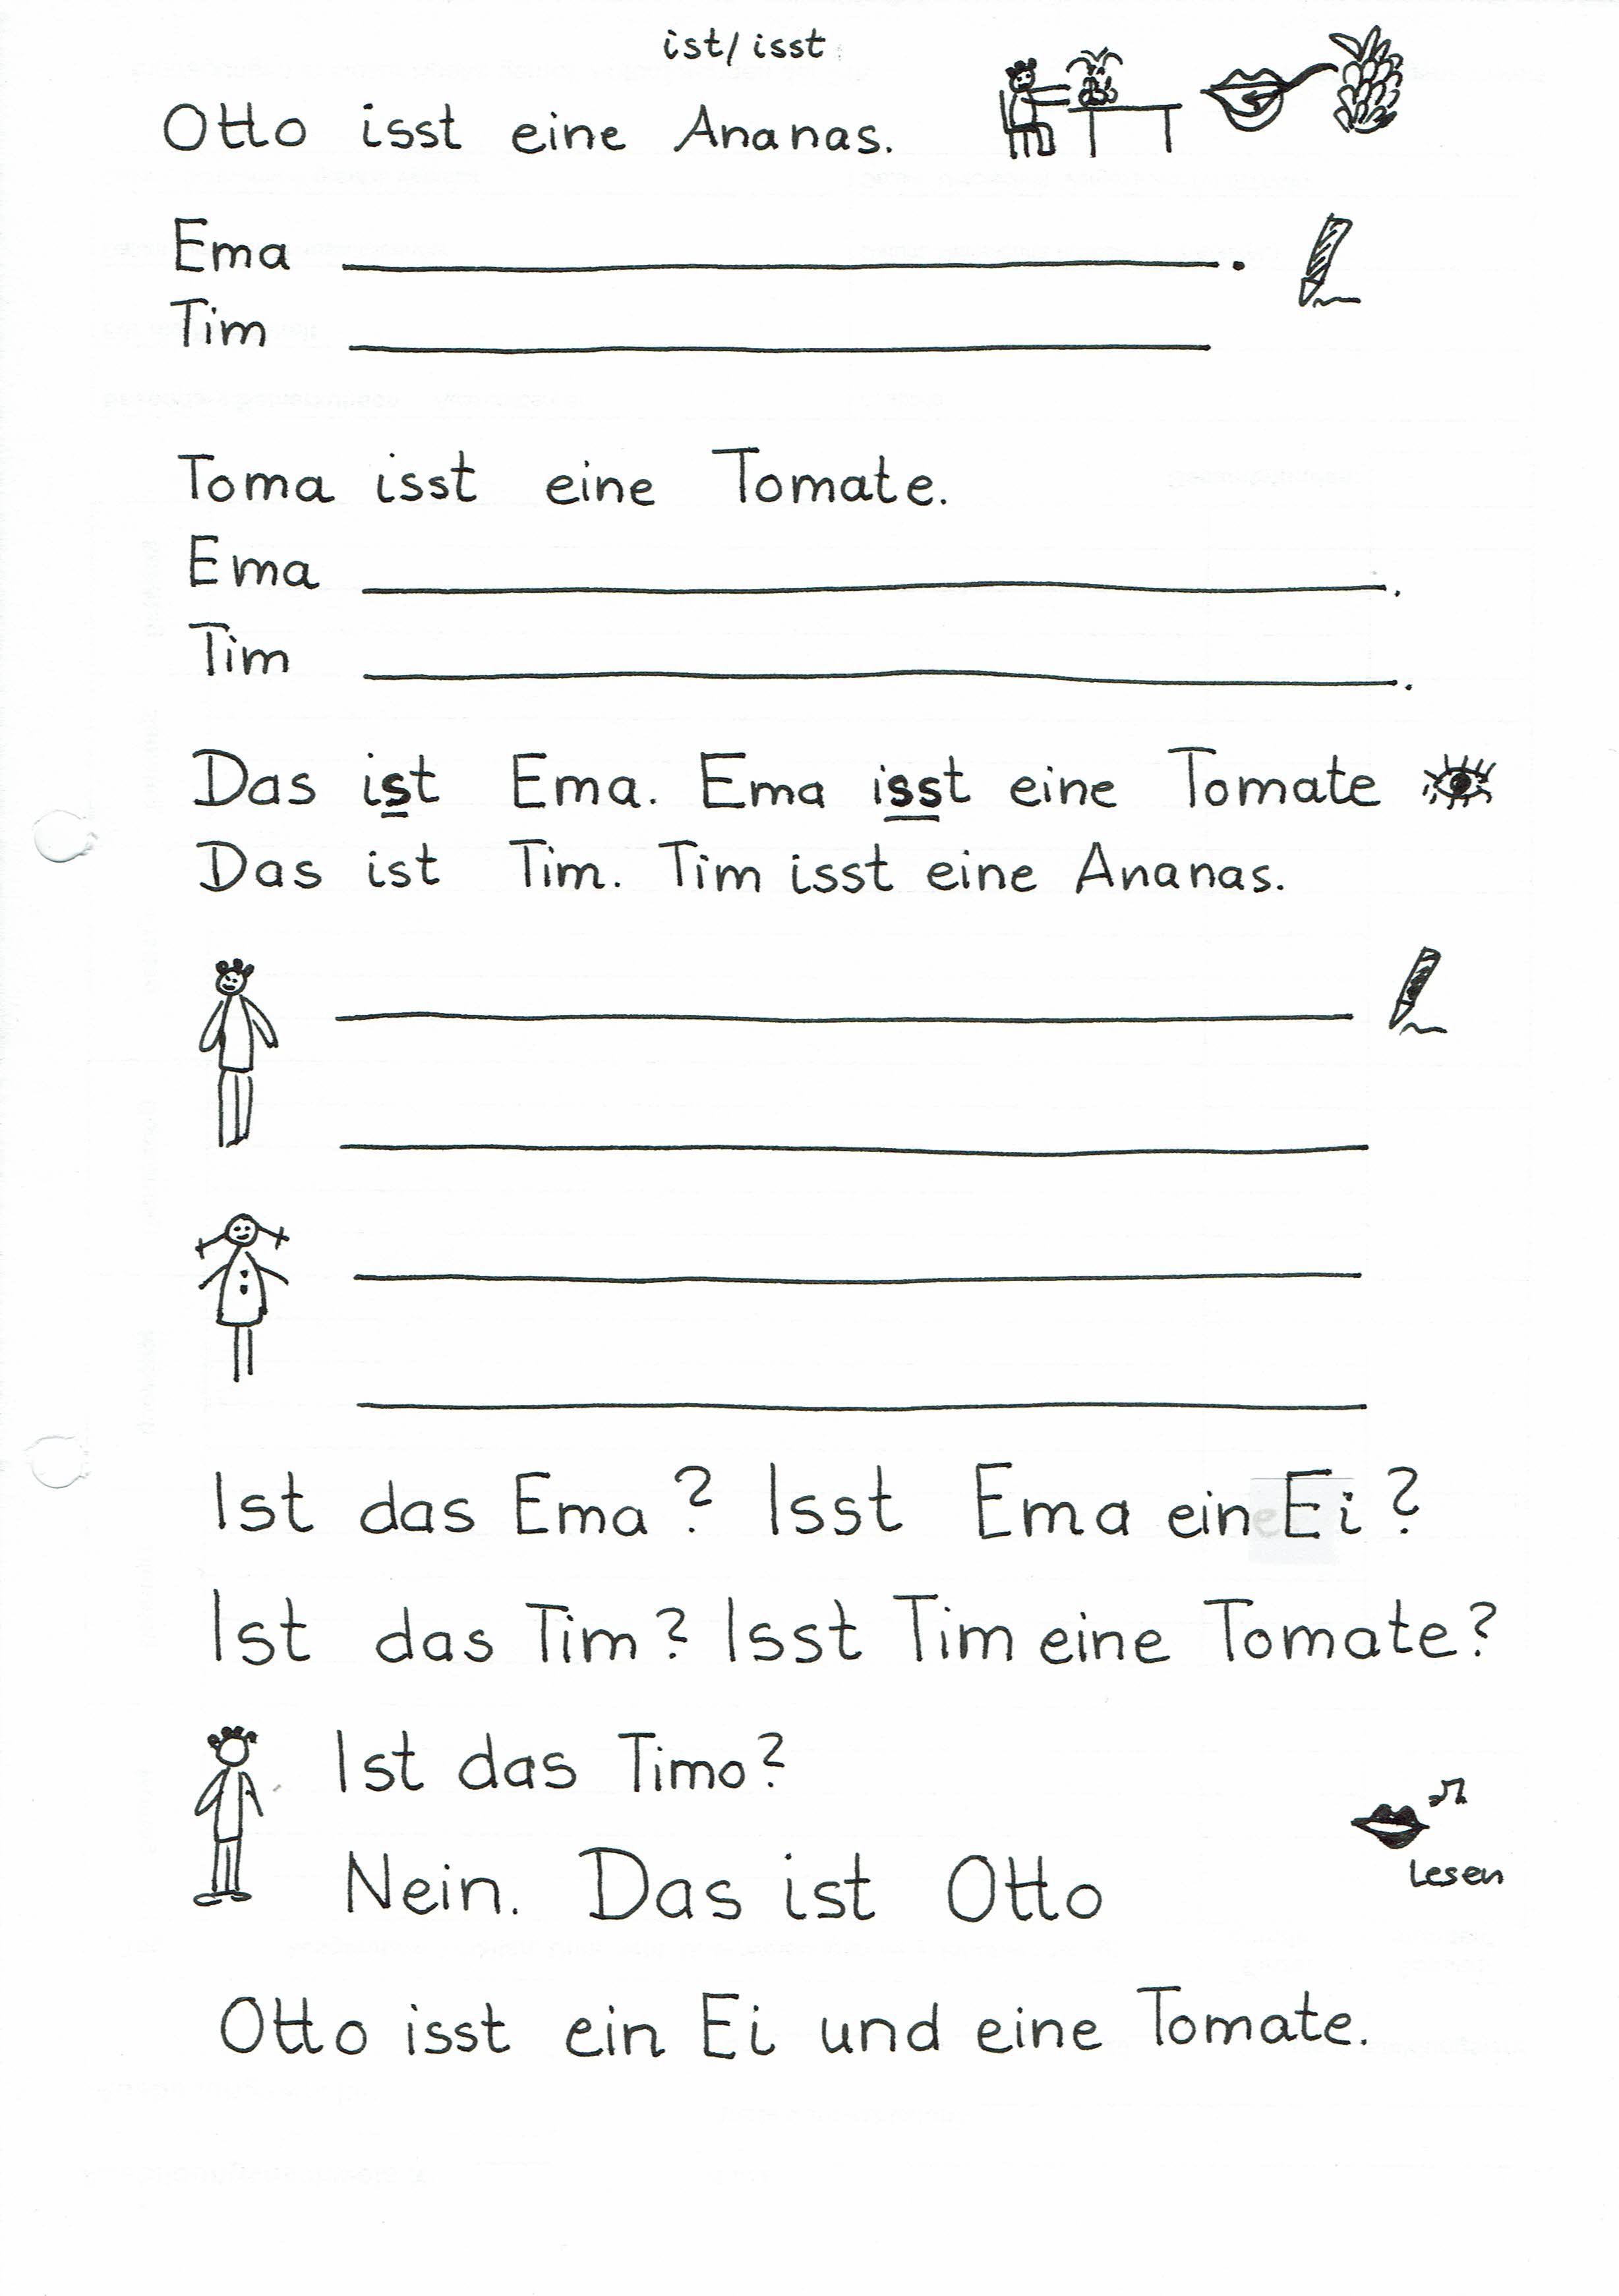 ist/ isst
Otto isst eine Ananas.
Ema .
Tim
Toma isst eine Tomate.
Ema .
Tim .
Das ist Ema. Ema isst eine Tomate
Das ist Tim. Tim isst eine Ananas.
Ist das Ema? Isst Ema ein Ei?
Ist das Tim? Isst Tim eine Tomate?
Ist das Timo?
Nein. Das ist Otto
lesen
Otto isst ein Ei und eine Tomate.